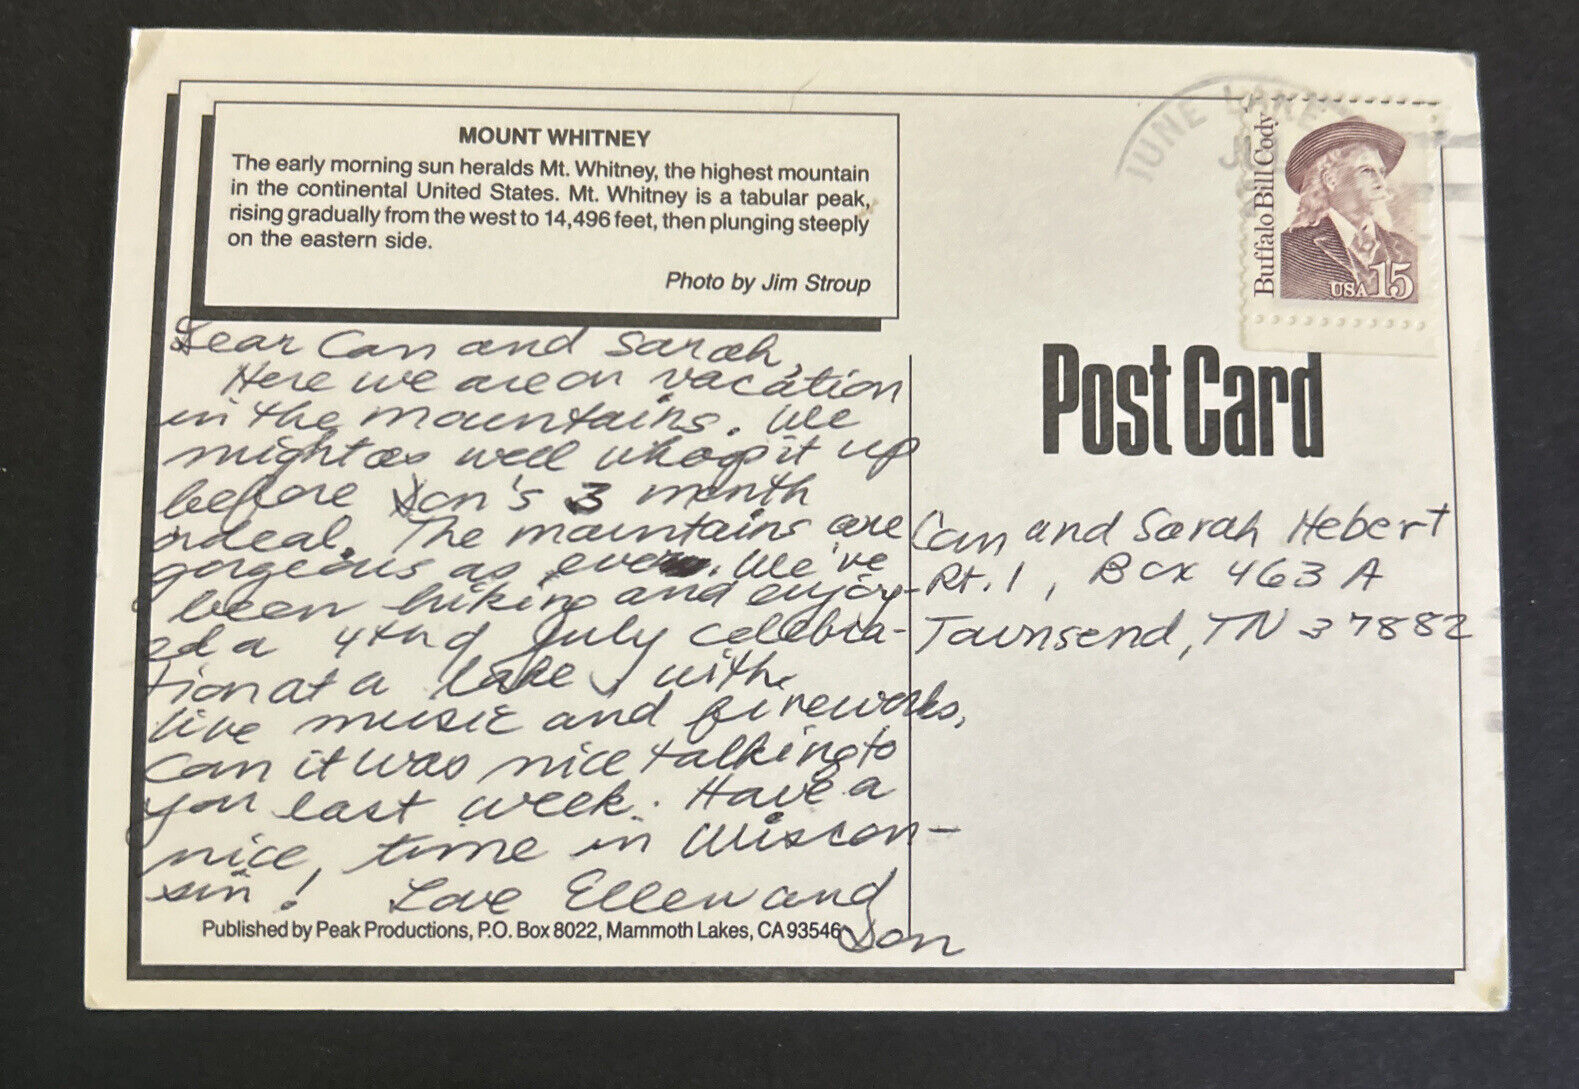 MOUNT WHITNEY
The early morning sun heralds Mt. Whitney, the highest mountain
in the continental United States. Mt. Whitney is a tabular peak,
rising gradually from the west to 14,496 feet, then plunging steeply
on the eastern side.
Photo by Jim Stroup
Dear Can and Sarah,
Here we are on vacation
in the mountains. We
might as well whoop it up
before Don's 3 month
ordeal. The mountains are
gorgeous as ever. We've
been hiking and enjoy-
ed a 4th of July celebra-
tion at a lake, with
live music and fireworks,
Can it was nice talking to
you last week. Have a
nice, time in Wiscon-
sin! Love Ellen and
Don
Published by Peak Productions, P.O. Box 8022, Mammoth Lakes, CA 93546
JUNE LAKE
Buffalo Bill Cody
USA 15
Post Card
Can and Sarah Hebert
Rt. 1, Box 463 A
Townsend, TN 37882